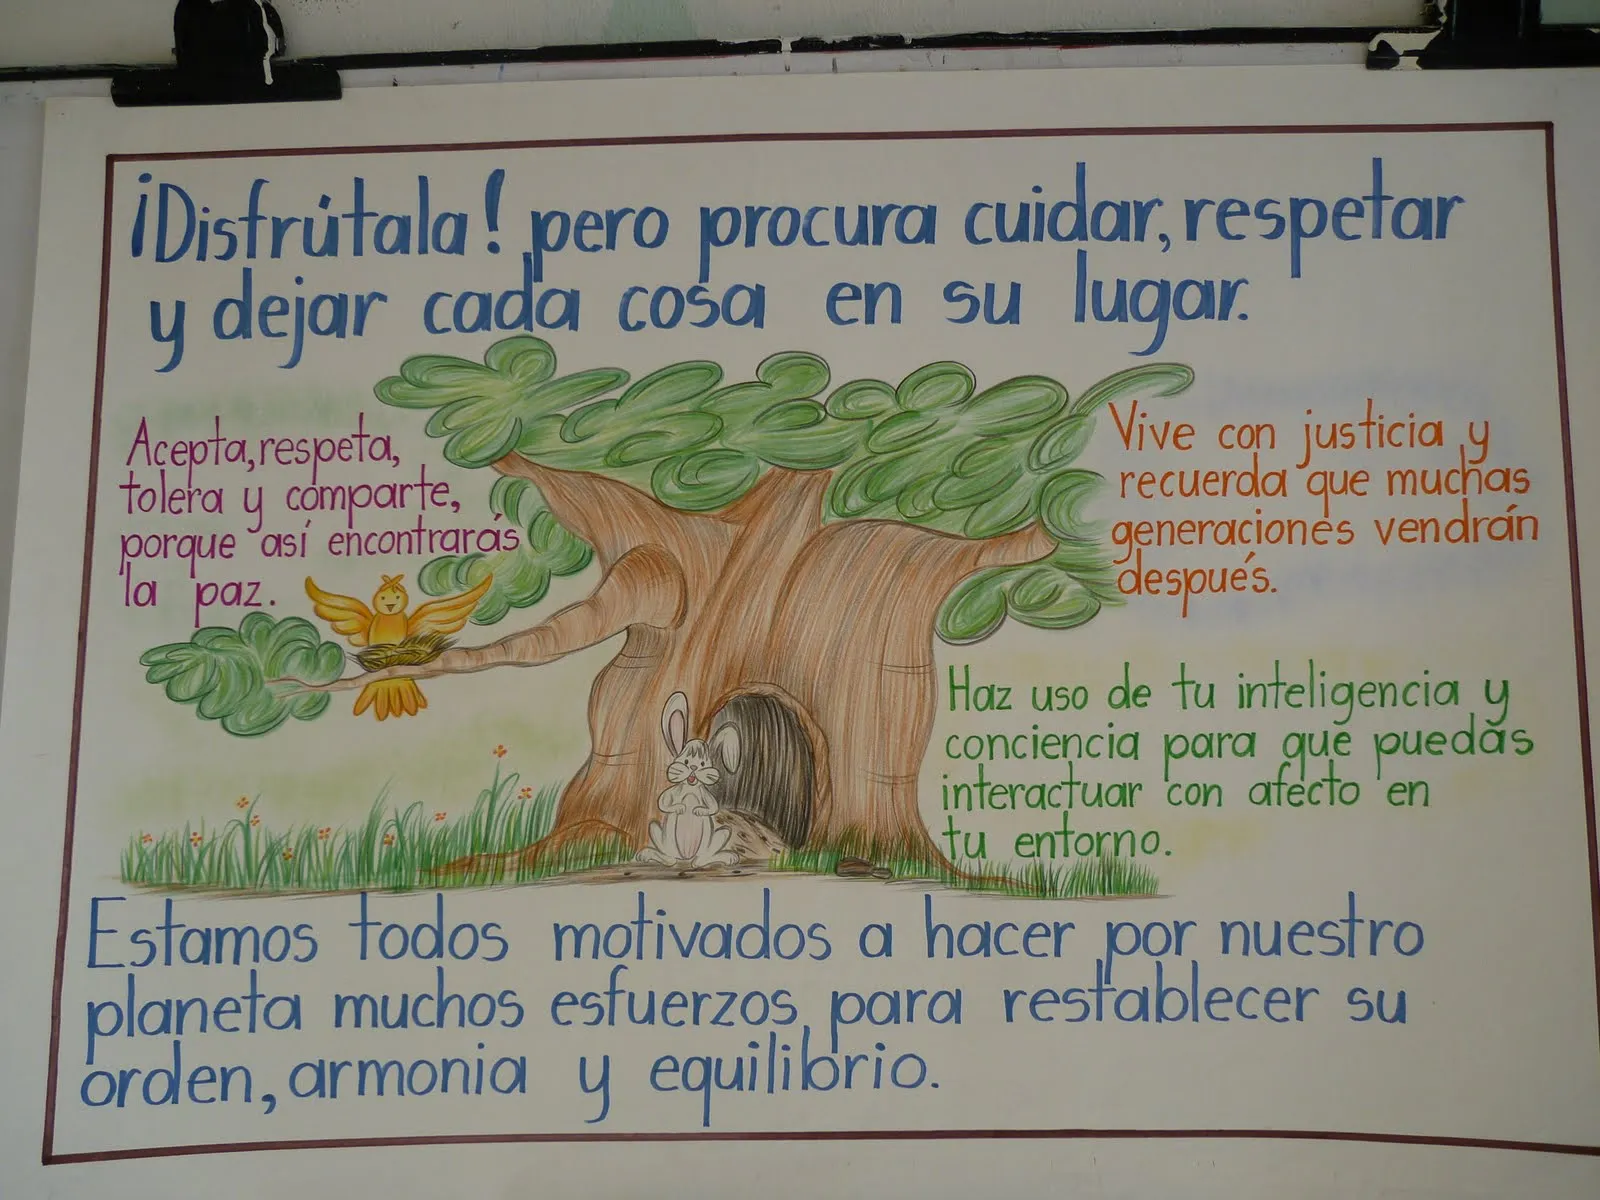 ¡Disfrútala! pero procura cuidar, respetar
y dejar cada cosa en su lugar.
Acepta, respeta,
tolera y comparte,
porque así encontrarás
la paz.
Vive con justicia y
recuerda que muchas
generaciones vendrán
después.
Haz uso de tu inteligencia y
conciencia para que puedas
interactuar con afecto en
tu entorno.
Estamos todos motivados a hacer por nuestro
planeta muchos esfuerzos para restablecer su
orden, armonia y equilibrio.